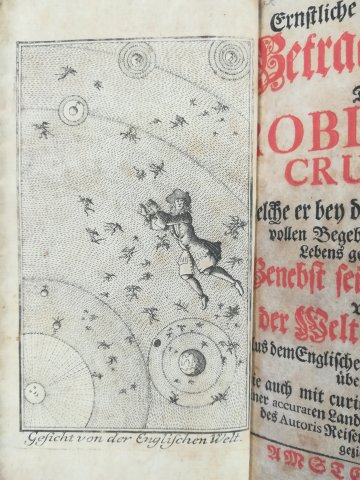 Gesicht von der Englischen Welt.
Ernstliche
Betra
ROBI
CRU
elche er bey d
vollen Begeb
Lebens ge
Benebst sei
der Welt
lus dem Englische
übe
ie auch mit curi
ner accuraten Land
des Autoris Reisen
gezi
AMST